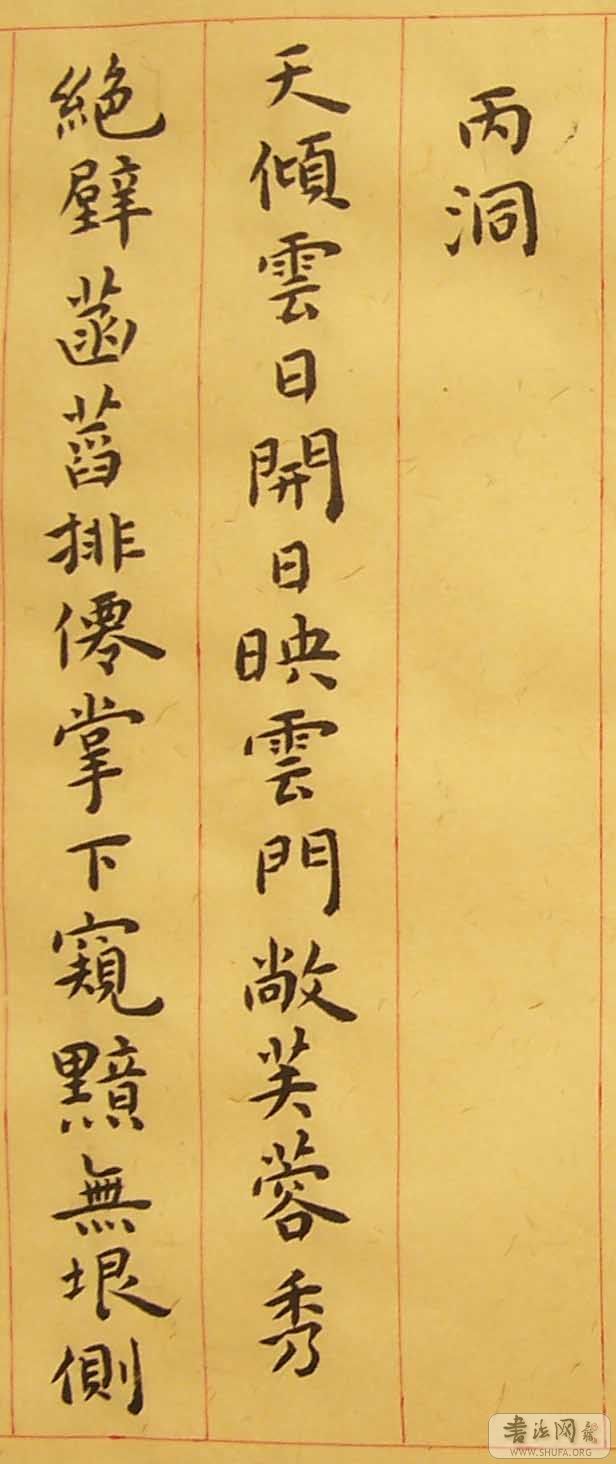 丙洞
天傾雲日開日映雲門敞芙蓉秀
絕壁菡萏排僊掌下窺黯無垠側
書法网
WWW.SHUFA.ORG